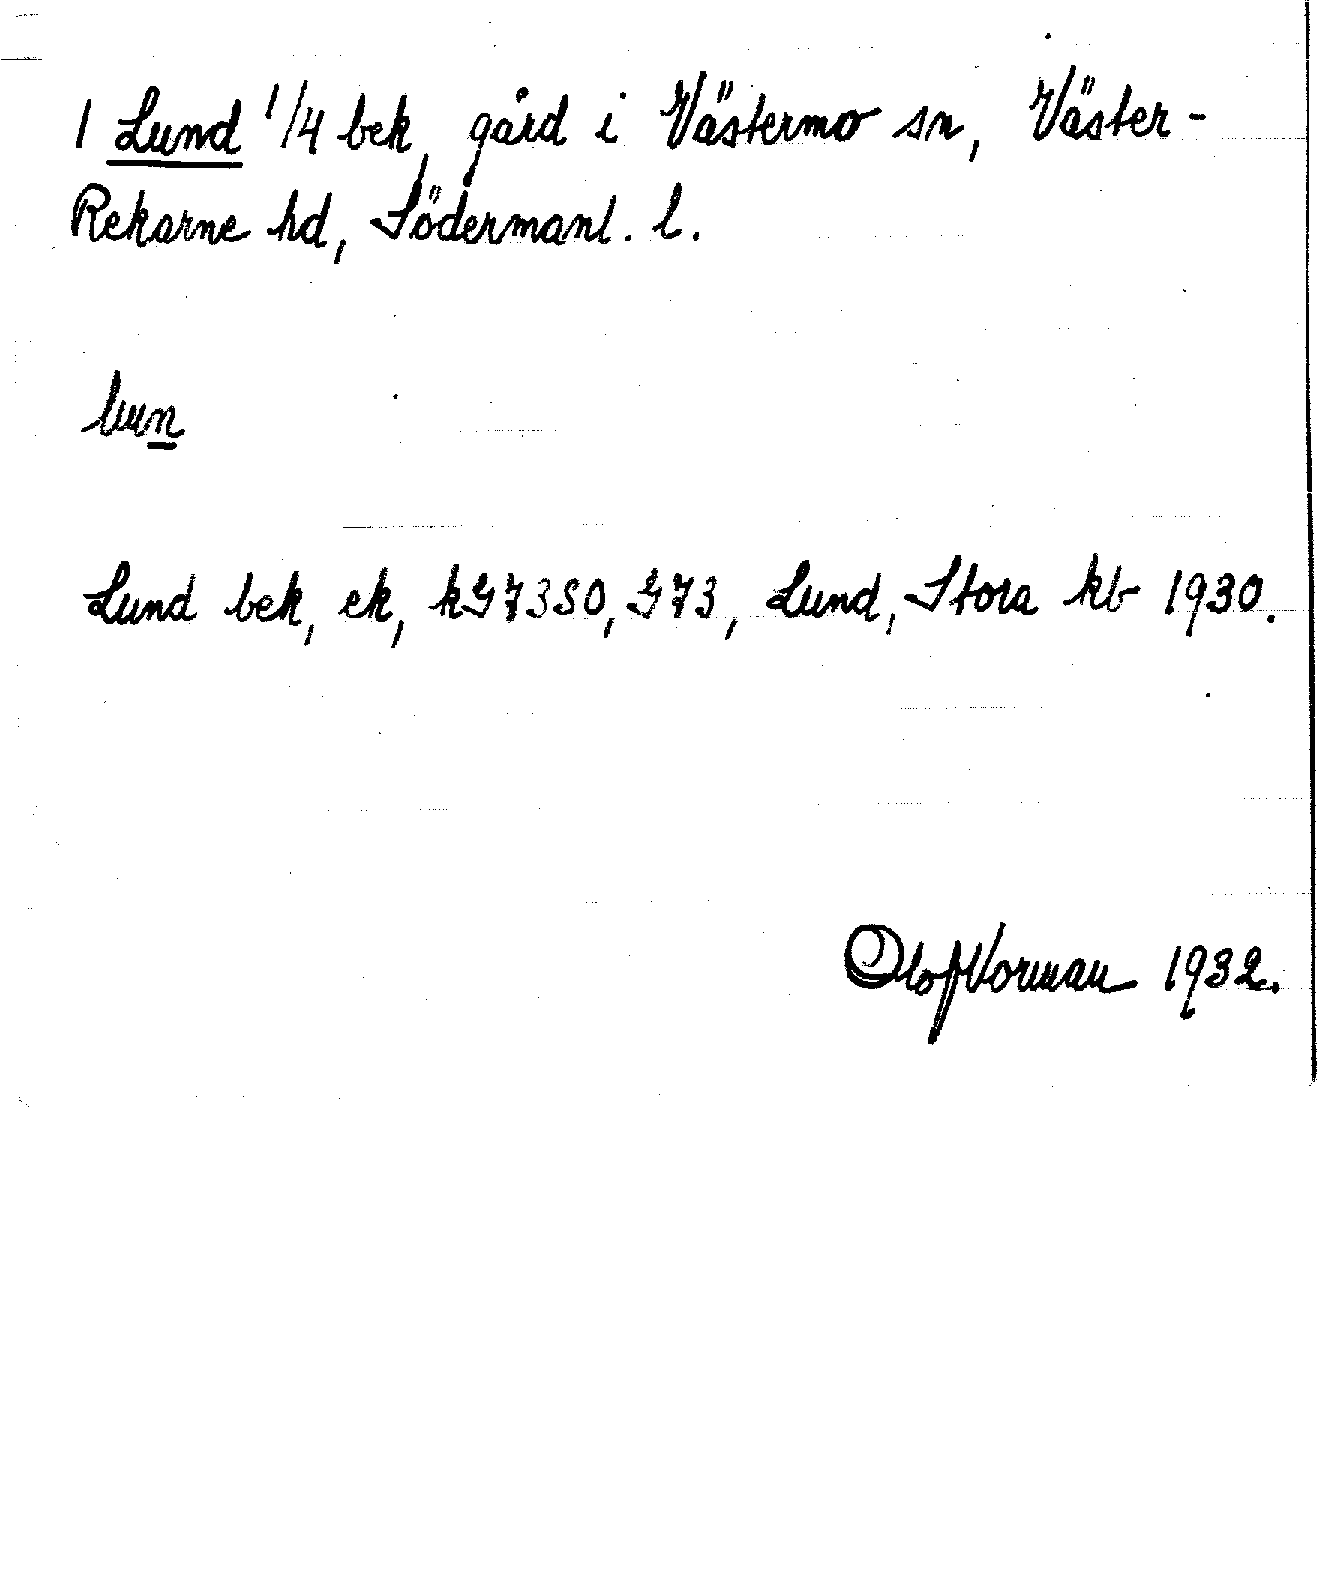 1 Lund 1/4 bek, gård i Västermo sn, Väster-
Rekarne hd, Södermanl. l.
lun
Lund bek, ek, kG73SO, G73, Lund, Stora kb 1930.
Olof Norman 1932.